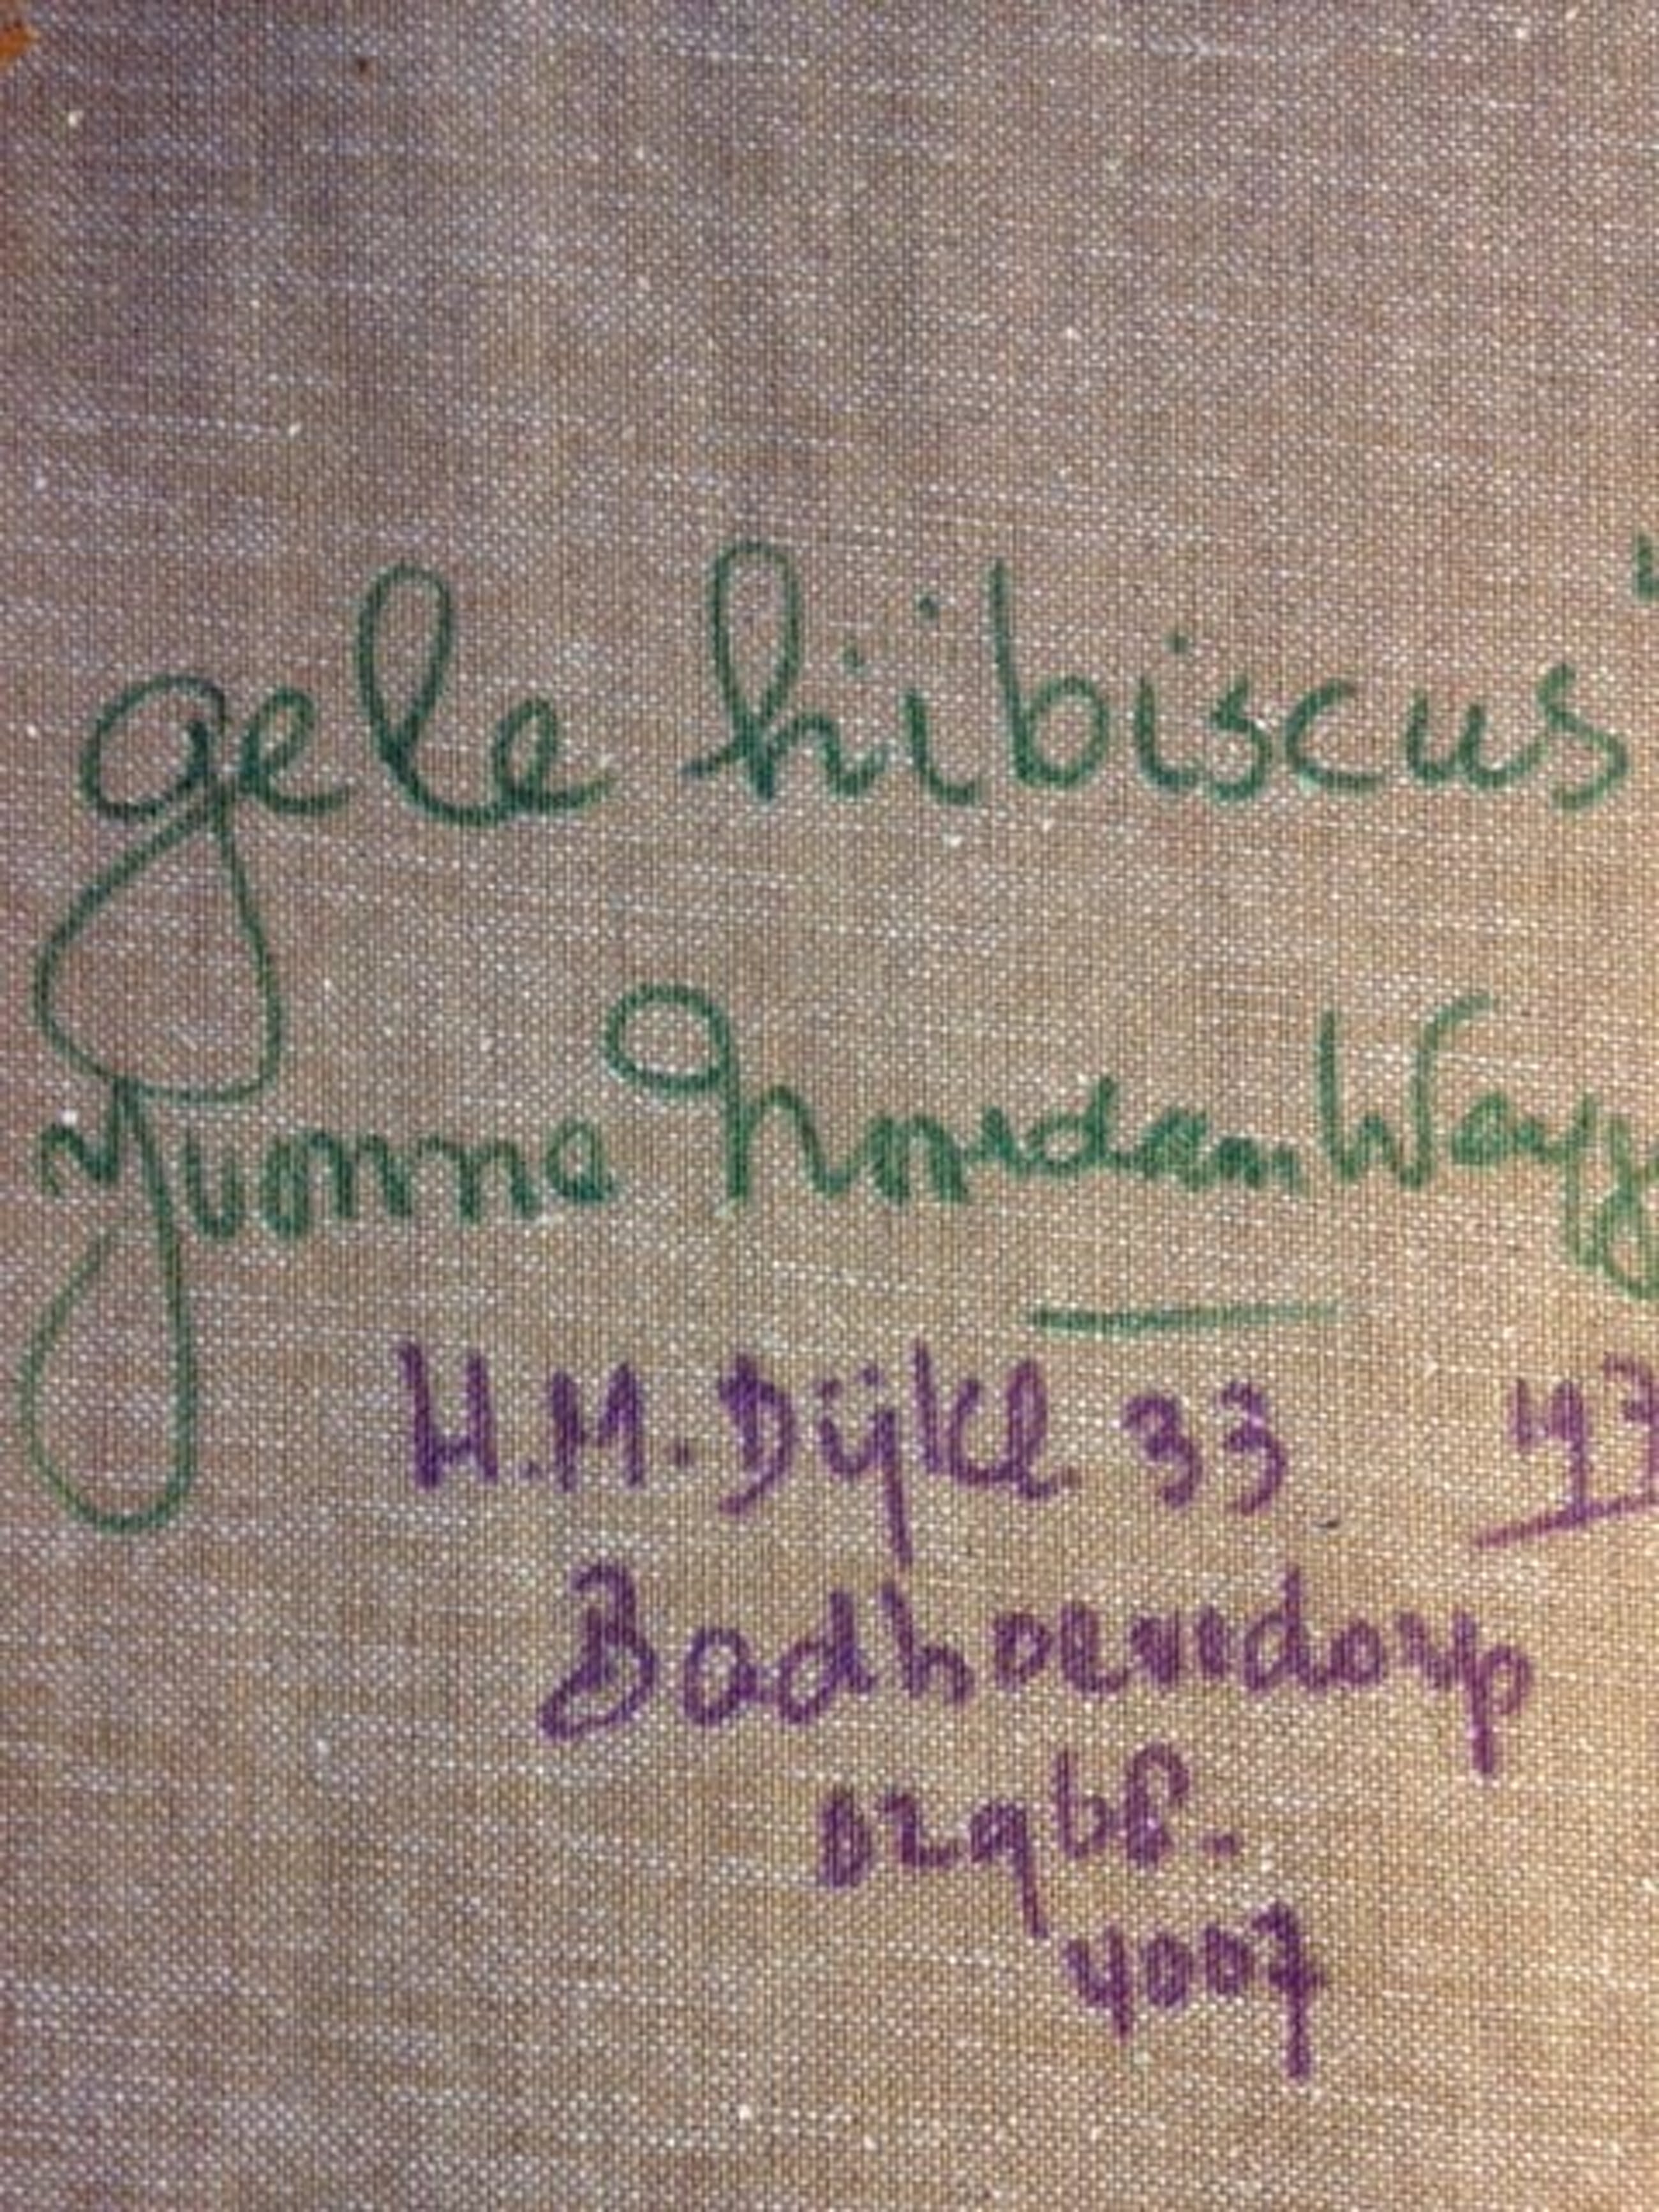 gele hibiscus "
Yvonne
H.M. Dijkl. 33
Badhoevedorp
02968-
4007